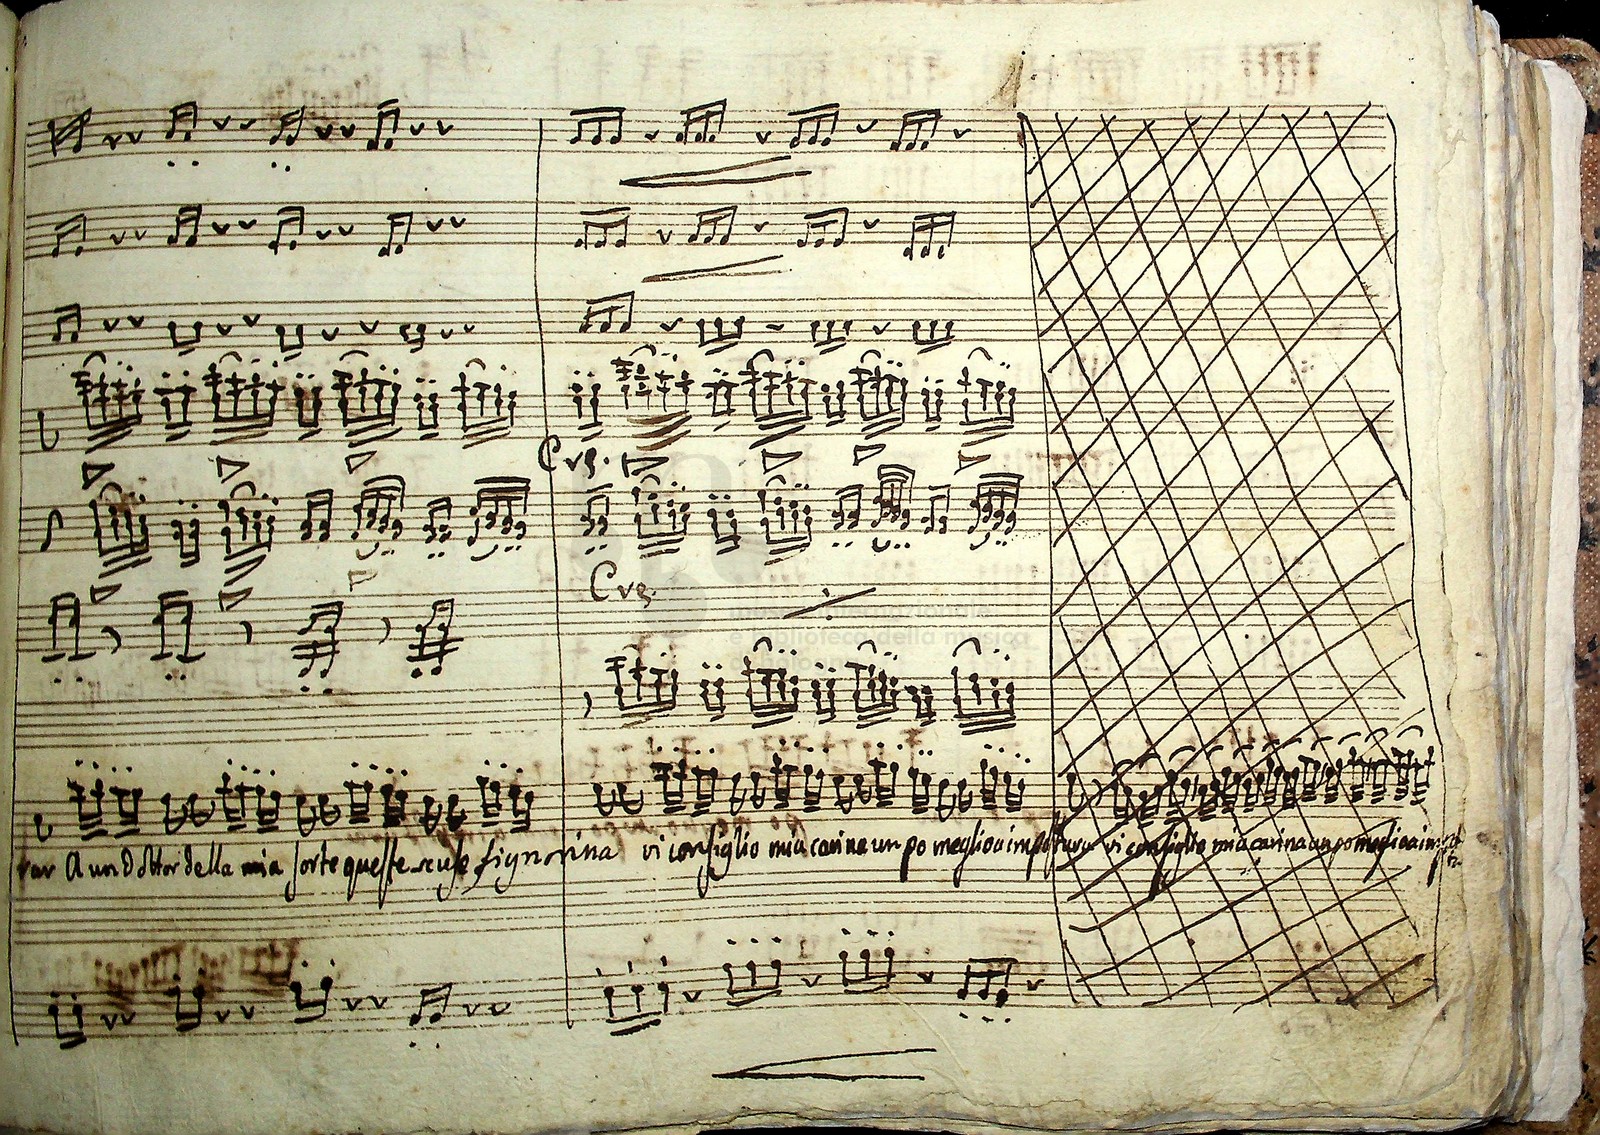 Cres.
Cres.
museo internazionale
e biblioteca della musica
di bologna
rar A un Dottor della mia sorte queste scuse signorina vi consiglio mia carina un po meglio a impostura vi consiglio mia carina un po meglio a impos